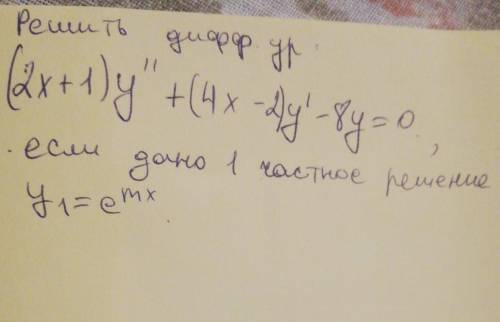 Решить дифф. ур.
(2x+1)y'' + (4x-2)y' - 8y = 0,
если дано 1 частное решение
y₁ = e^{mx}